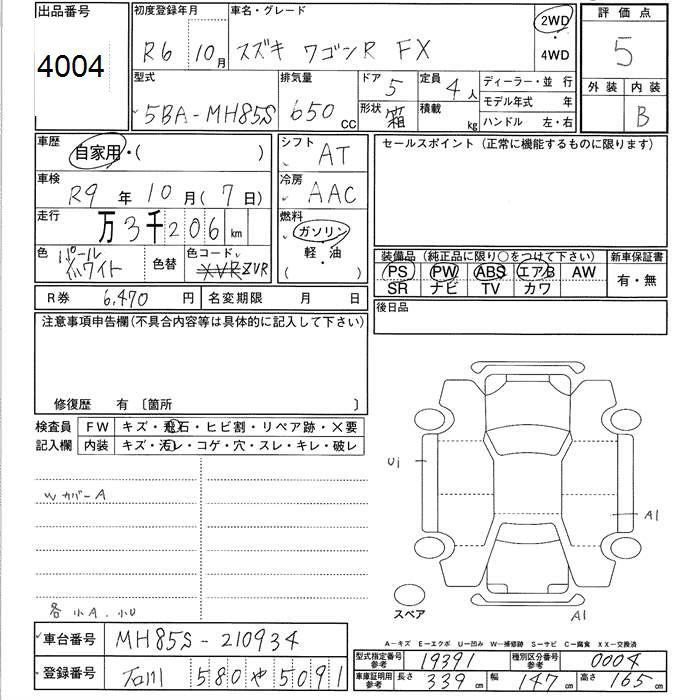 出品番号 初度登録年月 車名・グレード 2WD 評価点
4004 R6 10月 スズキ ワゴンR FX ・ 4WD 5
型式 排気量 ドア 5 定員 4人 ディーラー・並行 外装 内装
5BA-MH85S 650cc 形状 箱 積載 kg モデル年式 年 B
ハンドル 左・右
車歴 自家用・( ) シフト AT セールスポイント (正常に機能するものに限ります)
車検 R9年10月(7日) 冷房 AAC
走行 万3千206km 燃料 ガソリン
色 パールホワイト 色替 色コード ZVR 軽・油 ( )
装備品 (純正品に限り○をつけて下さい) 新車保証書
PS PW ABS エアB AW 有・無
SR ナビ TV カワ
R券 6,470円 名変期限 月 日 後日品
注意事項申告欄(不具合内容等は具体的に記入して下さい)
修復歴 有 〔箇所 〕
検査員 FW キズ・飛石・ヒビ割・リペア跡・×要
記入欄 内装 キズ・汚レ・コゲ・穴・スレ・キレ・破レ
U1
WカバーA
A1
各小A.小U
スペア A1
A-キズ E-エクボ U-凹み W-補修跡 S-サビ C-腐食 XX-交換済
車台番号 MH85S-210934
型式指定番号 参考 19391 種別区分番号 参考 0004
登録番号 石川 580 や 5091
車庫証明用 参考 長さ 339cm 幅 147cm 高さ 165cm